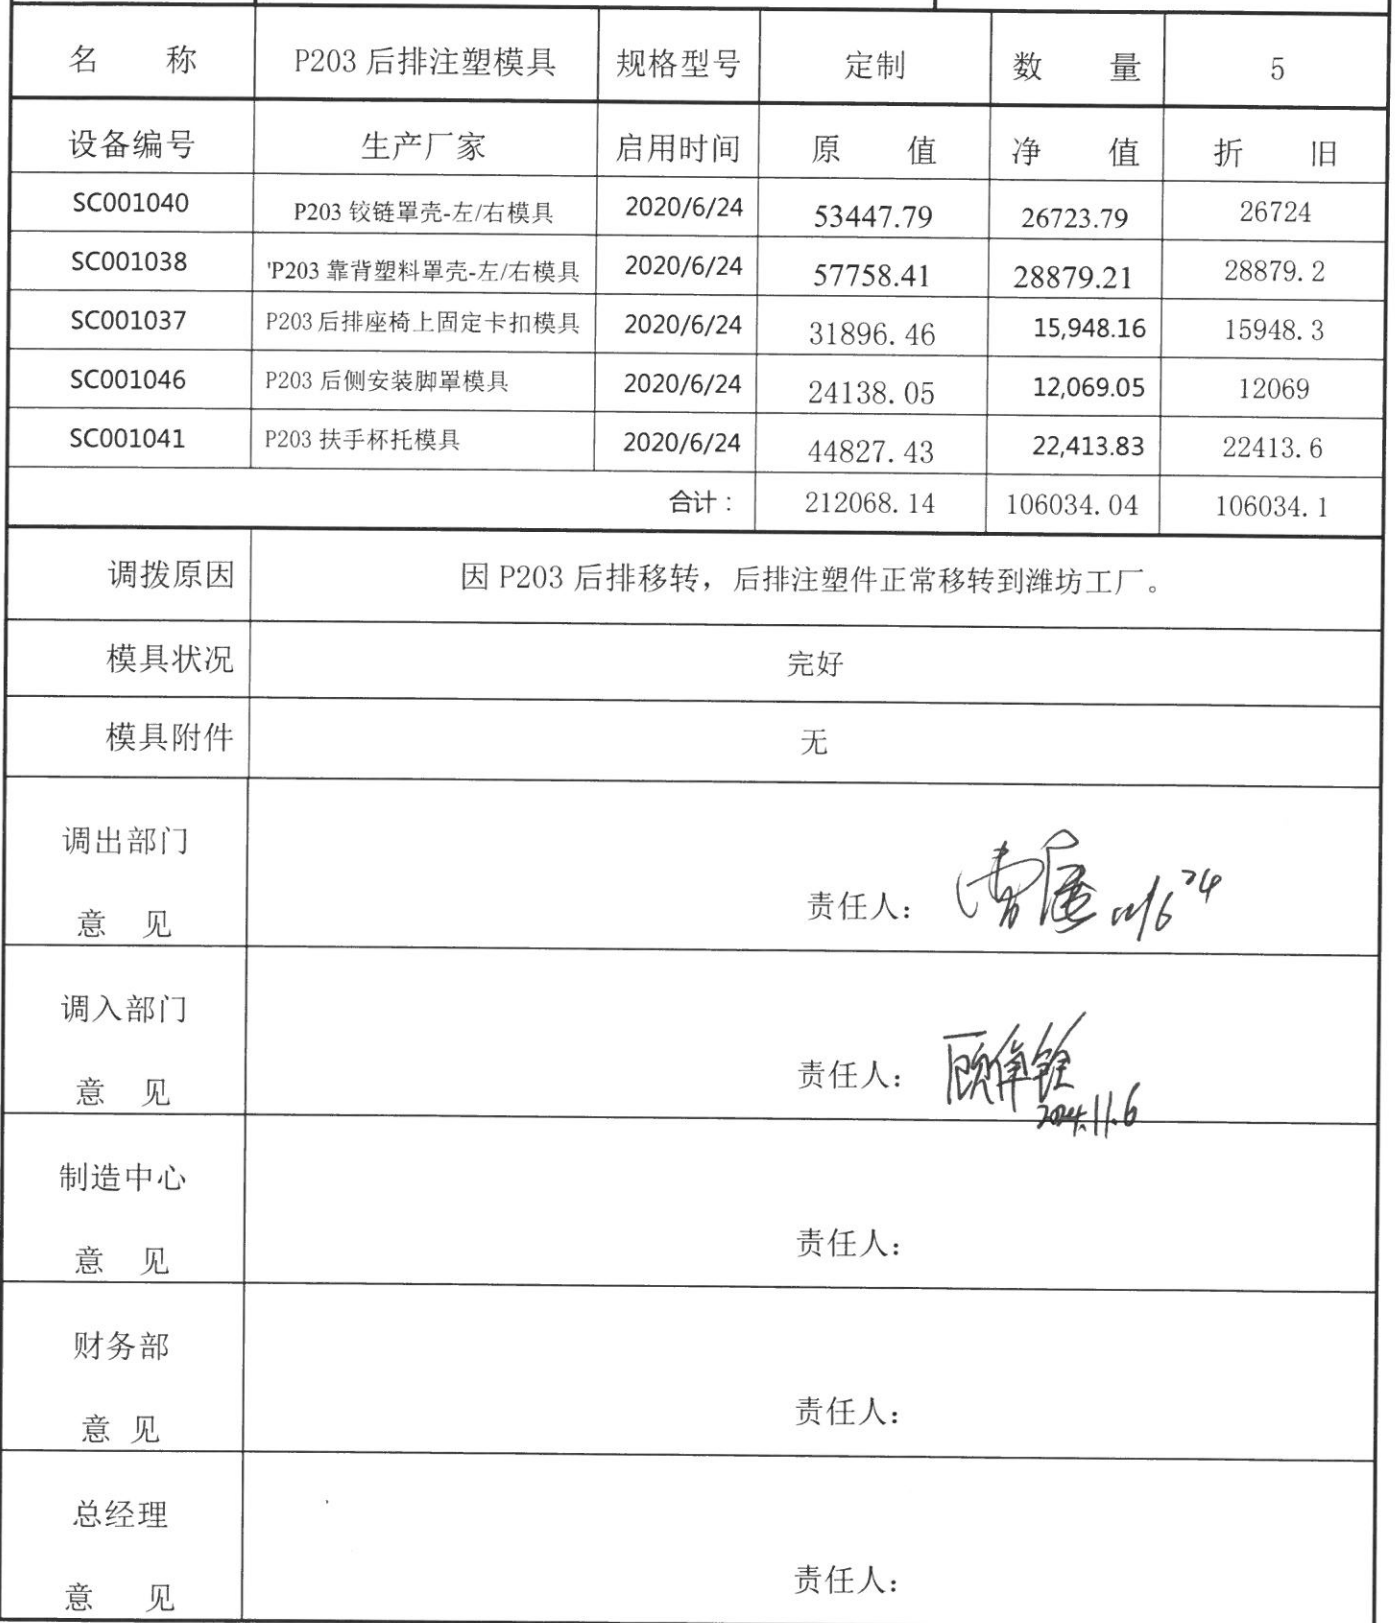 名 称 P203 后排注塑模具 规格型号 定制 数 量 5
设备编号 生产厂家 启用时间 原 值 净 值 折 旧
SC001040 P203 铰链罩壳-左/右模具 2020/6/24 53447.79 26723.79 26724
SC001038 'P203 靠背塑料罩壳-左/右模具 2020/6/24 57758.41 28879.21 28879.2
SC001037 P203 后排座椅上固定卡扣模具 2020/6/24 31896.46 15,948.16 15948.3
SC001046 P203 后侧安装脚罩模具 2020/6/24 24138.05 12,069.05 12069
SC001041 P203 扶手杯托模具 2020/6/24 44827.43 22,413.83 22413.6
合计： 212068.14 106034.04 106034.1
调拨原因 因 P203 后排移转，后排注塑件正常移转到潍坊工厂。
模具状况 完好
模具附件 无
调出部门
意 见 责任人：
调入部门
意 见 责任人：
2024.11.6
制造中心
意 见 责任人：
财务部
意 见 责任人：
总经理
意 见 责任人：